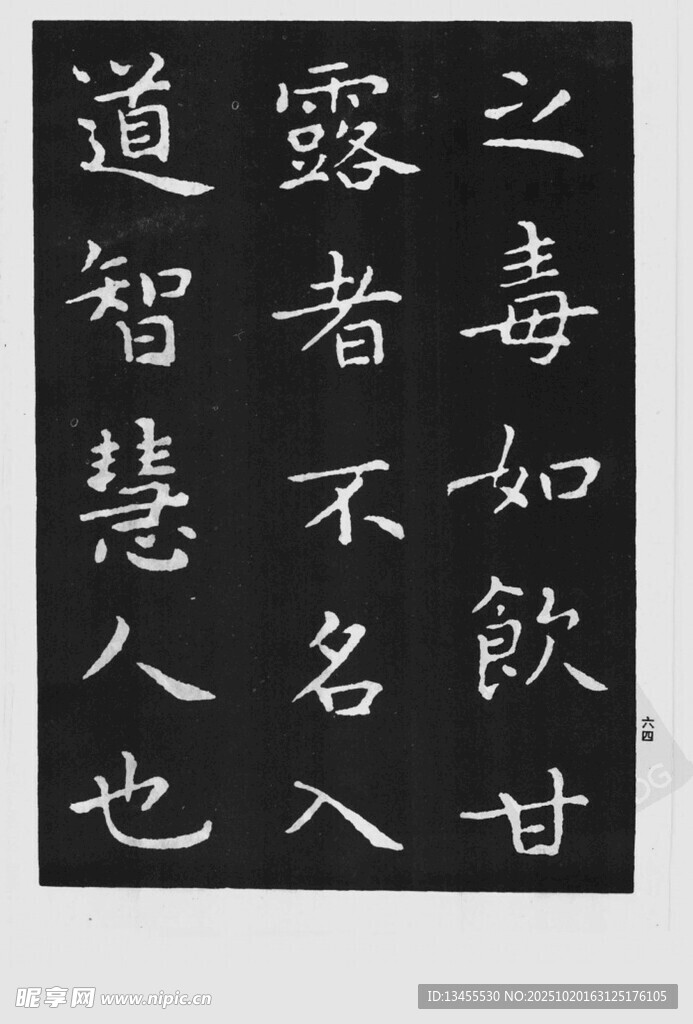 之毒如飲甘
露者不名入
道智慧人也
六四
昵享网 www.nipic.cn
ID:13455530 NO:20251020163125176105